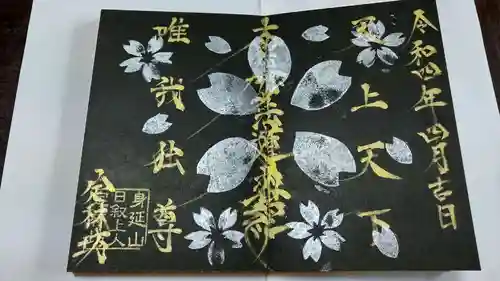 令和四年四月吉日
天上天下
南無妙法蓮華経
唯我独尊
身延山
日叙上人